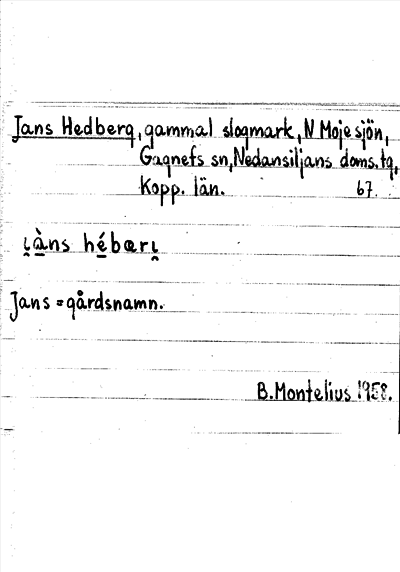 Jans Hedberg, gammal slogmark, N Mojesjön,
Gagnefs sn, Nedansiljans doms.tg,
Kopp. län. 67.
i̯àns hébærı̯
Jans = gårdsnamn.
B. Montelius 1958.